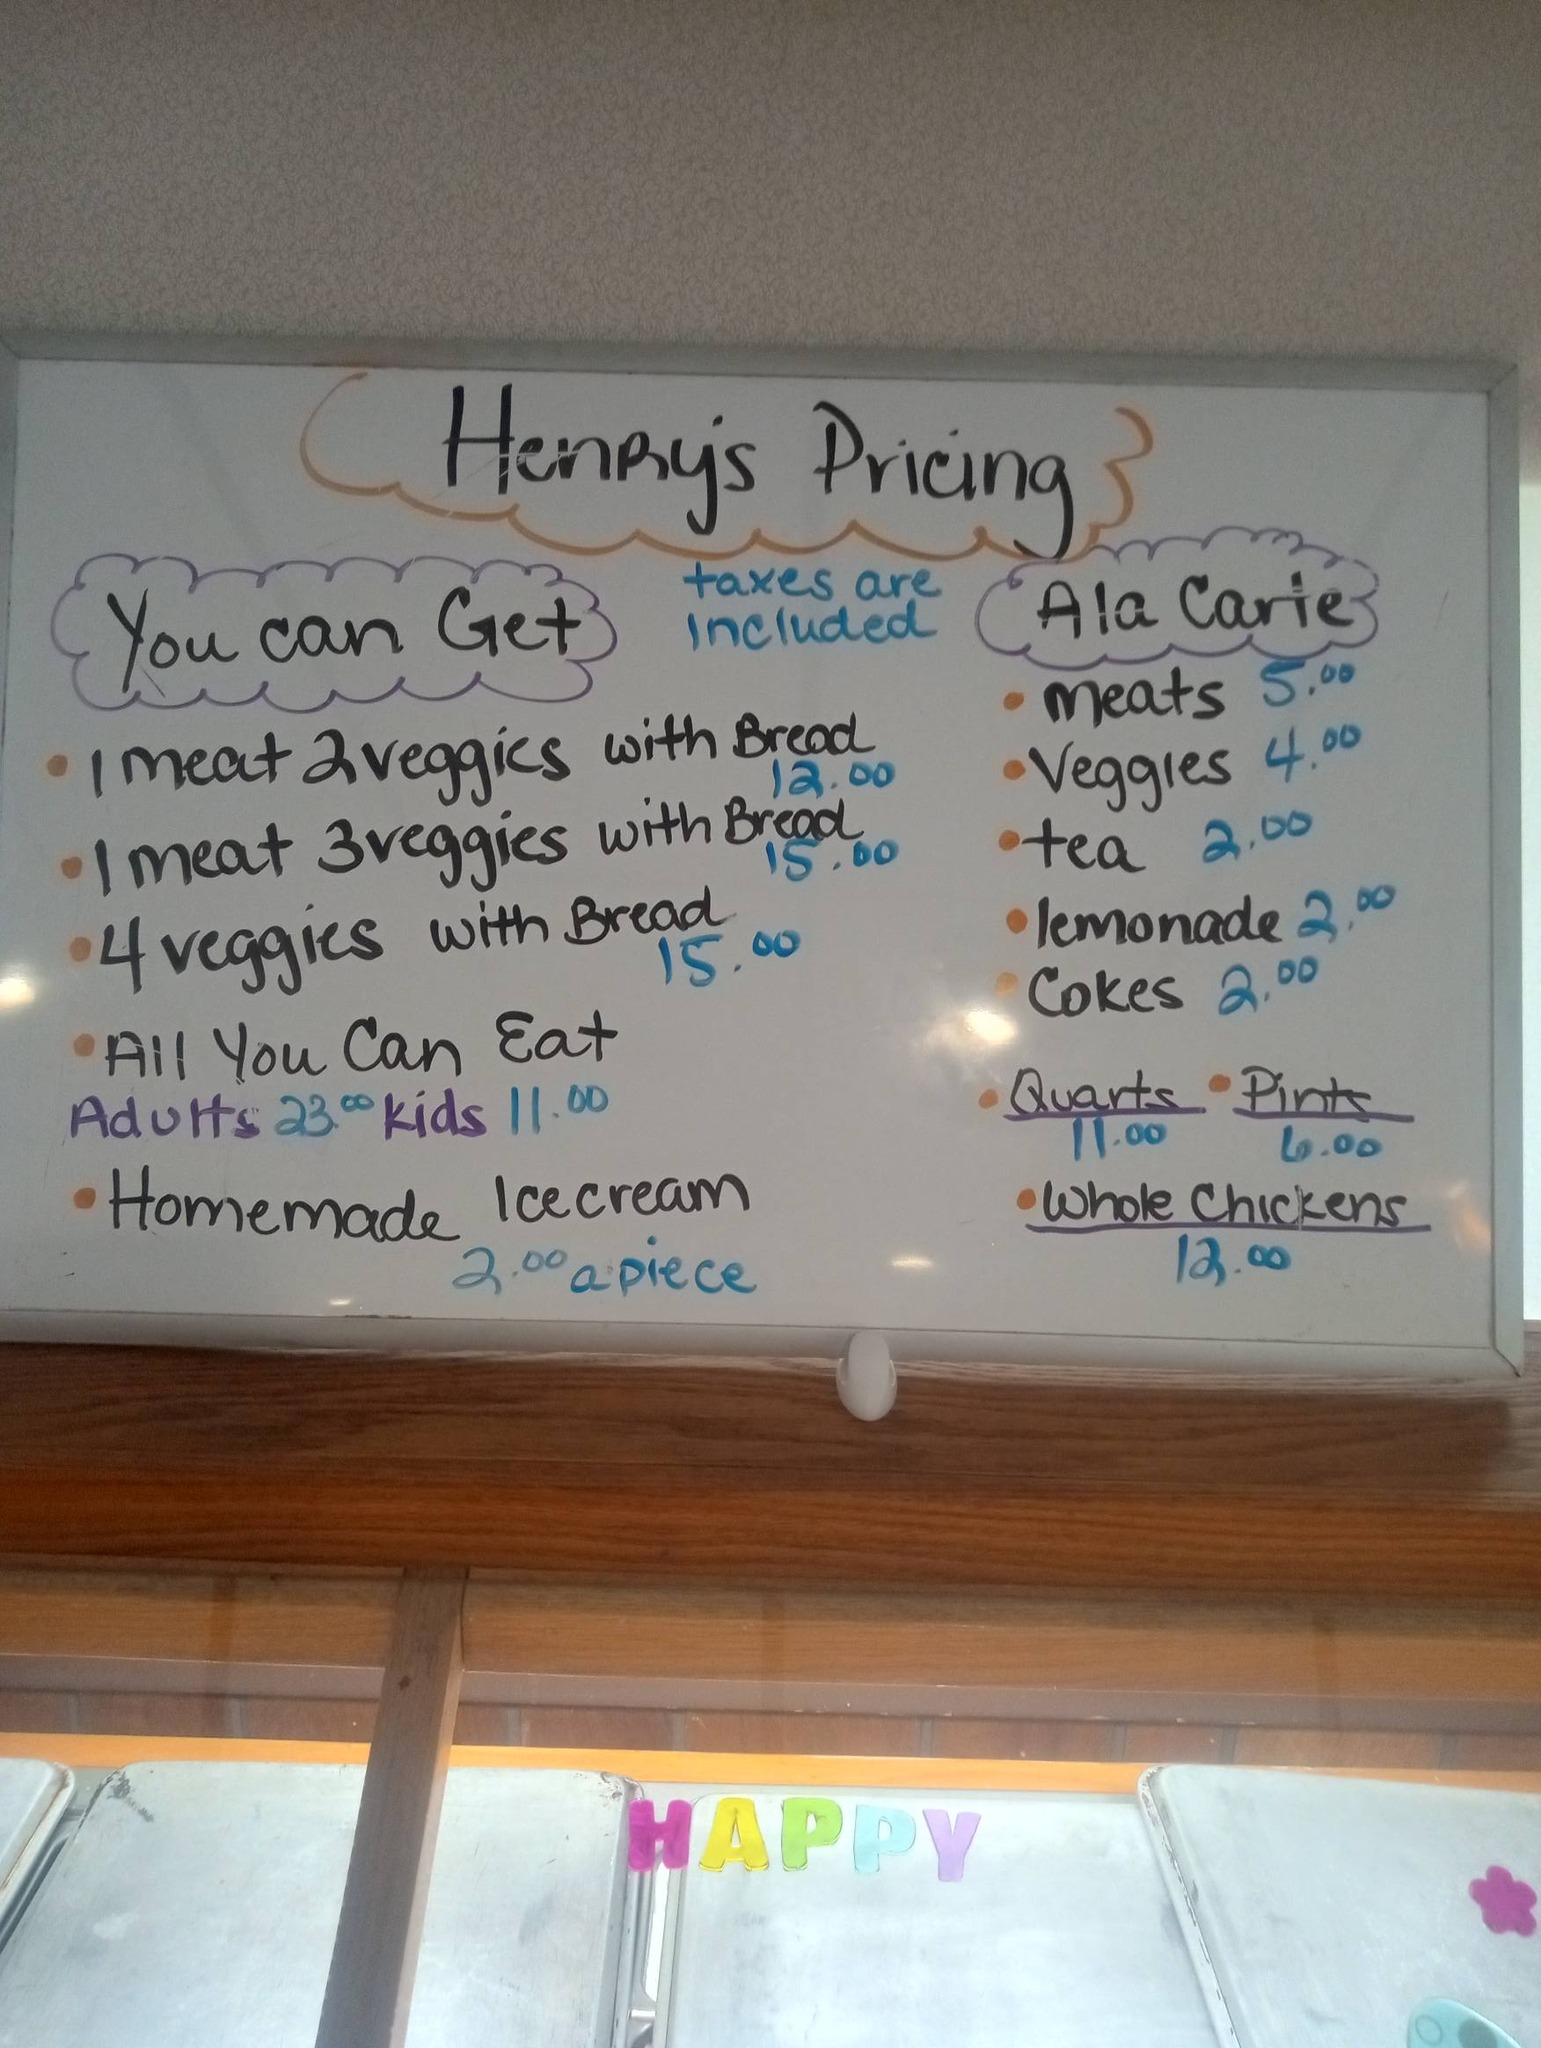 Henry's Pricing
taxes are
included
You can Get
• 1 meat 2 veggies with Bread
12.00
• 1 meat 3 veggies with Bread
15.00
• 4 veggies with Bread
15.00
• All You Can Eat
Adults 23.00 kids 11.00
• Homemade Icecream
2.00 a piece
Ala Carte
• meats 5.00
• Veggies 4.00
• tea 2.00
• lemonade 2.00
• Cokes 2.00
• Quarts • Pints
11.00 6.00
• Whole Chickens
12.00
HAPPY